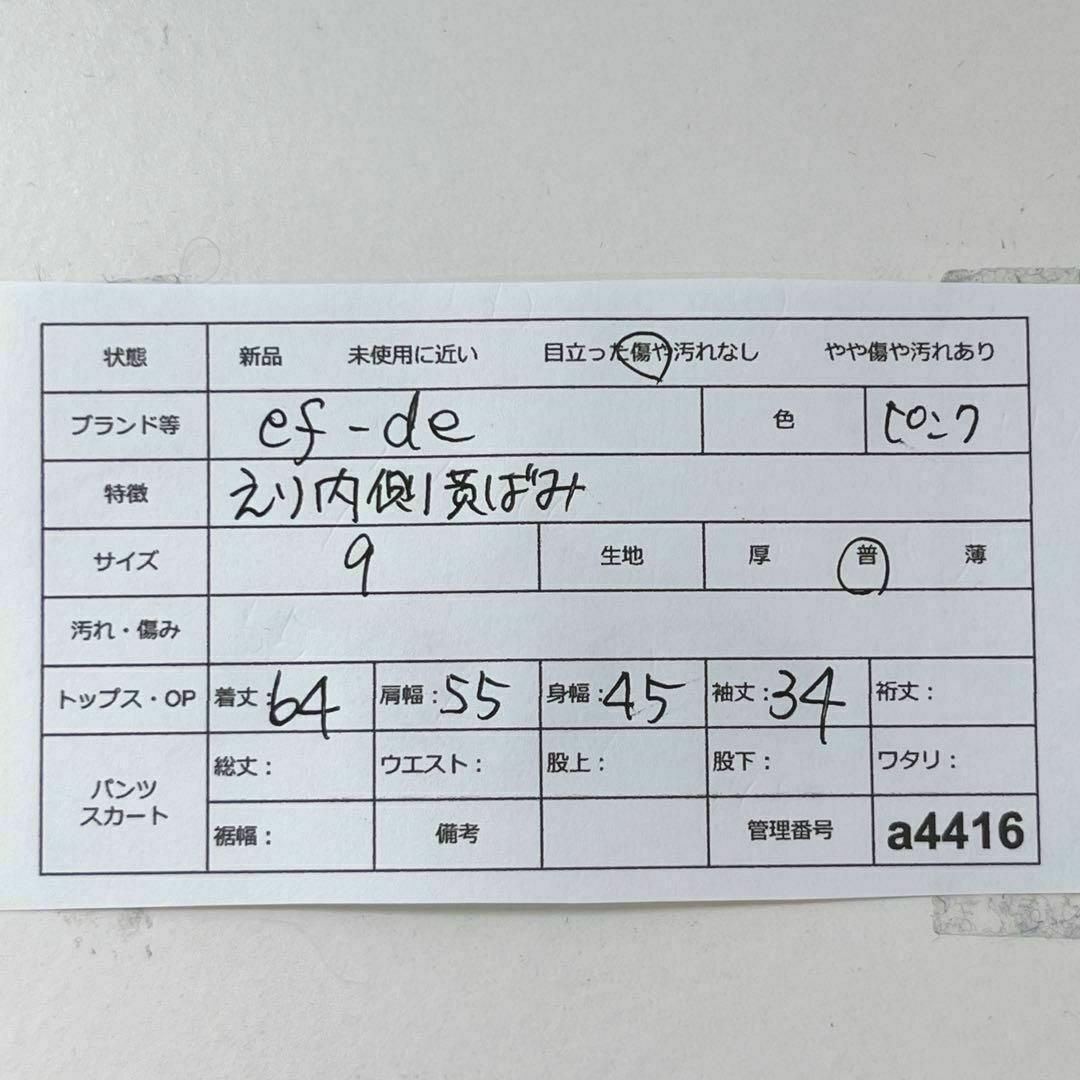 状態 新品 未使用に近い 目立った傷や汚れなし やや傷や汚れあり
ブランド等 ef-de 色 ピンク
特徴 えり内側り黄ばみ
サイズ 9 生地 厚 普 薄
汚れ・傷み
トップス・OP 着丈:64 肩幅:55 身幅:45 袖丈:34 裄丈:
パンツ スカート 総丈: ウエスト: 股上: 股下: ワタリ:
裾幅: 備考 管理番号 a4416